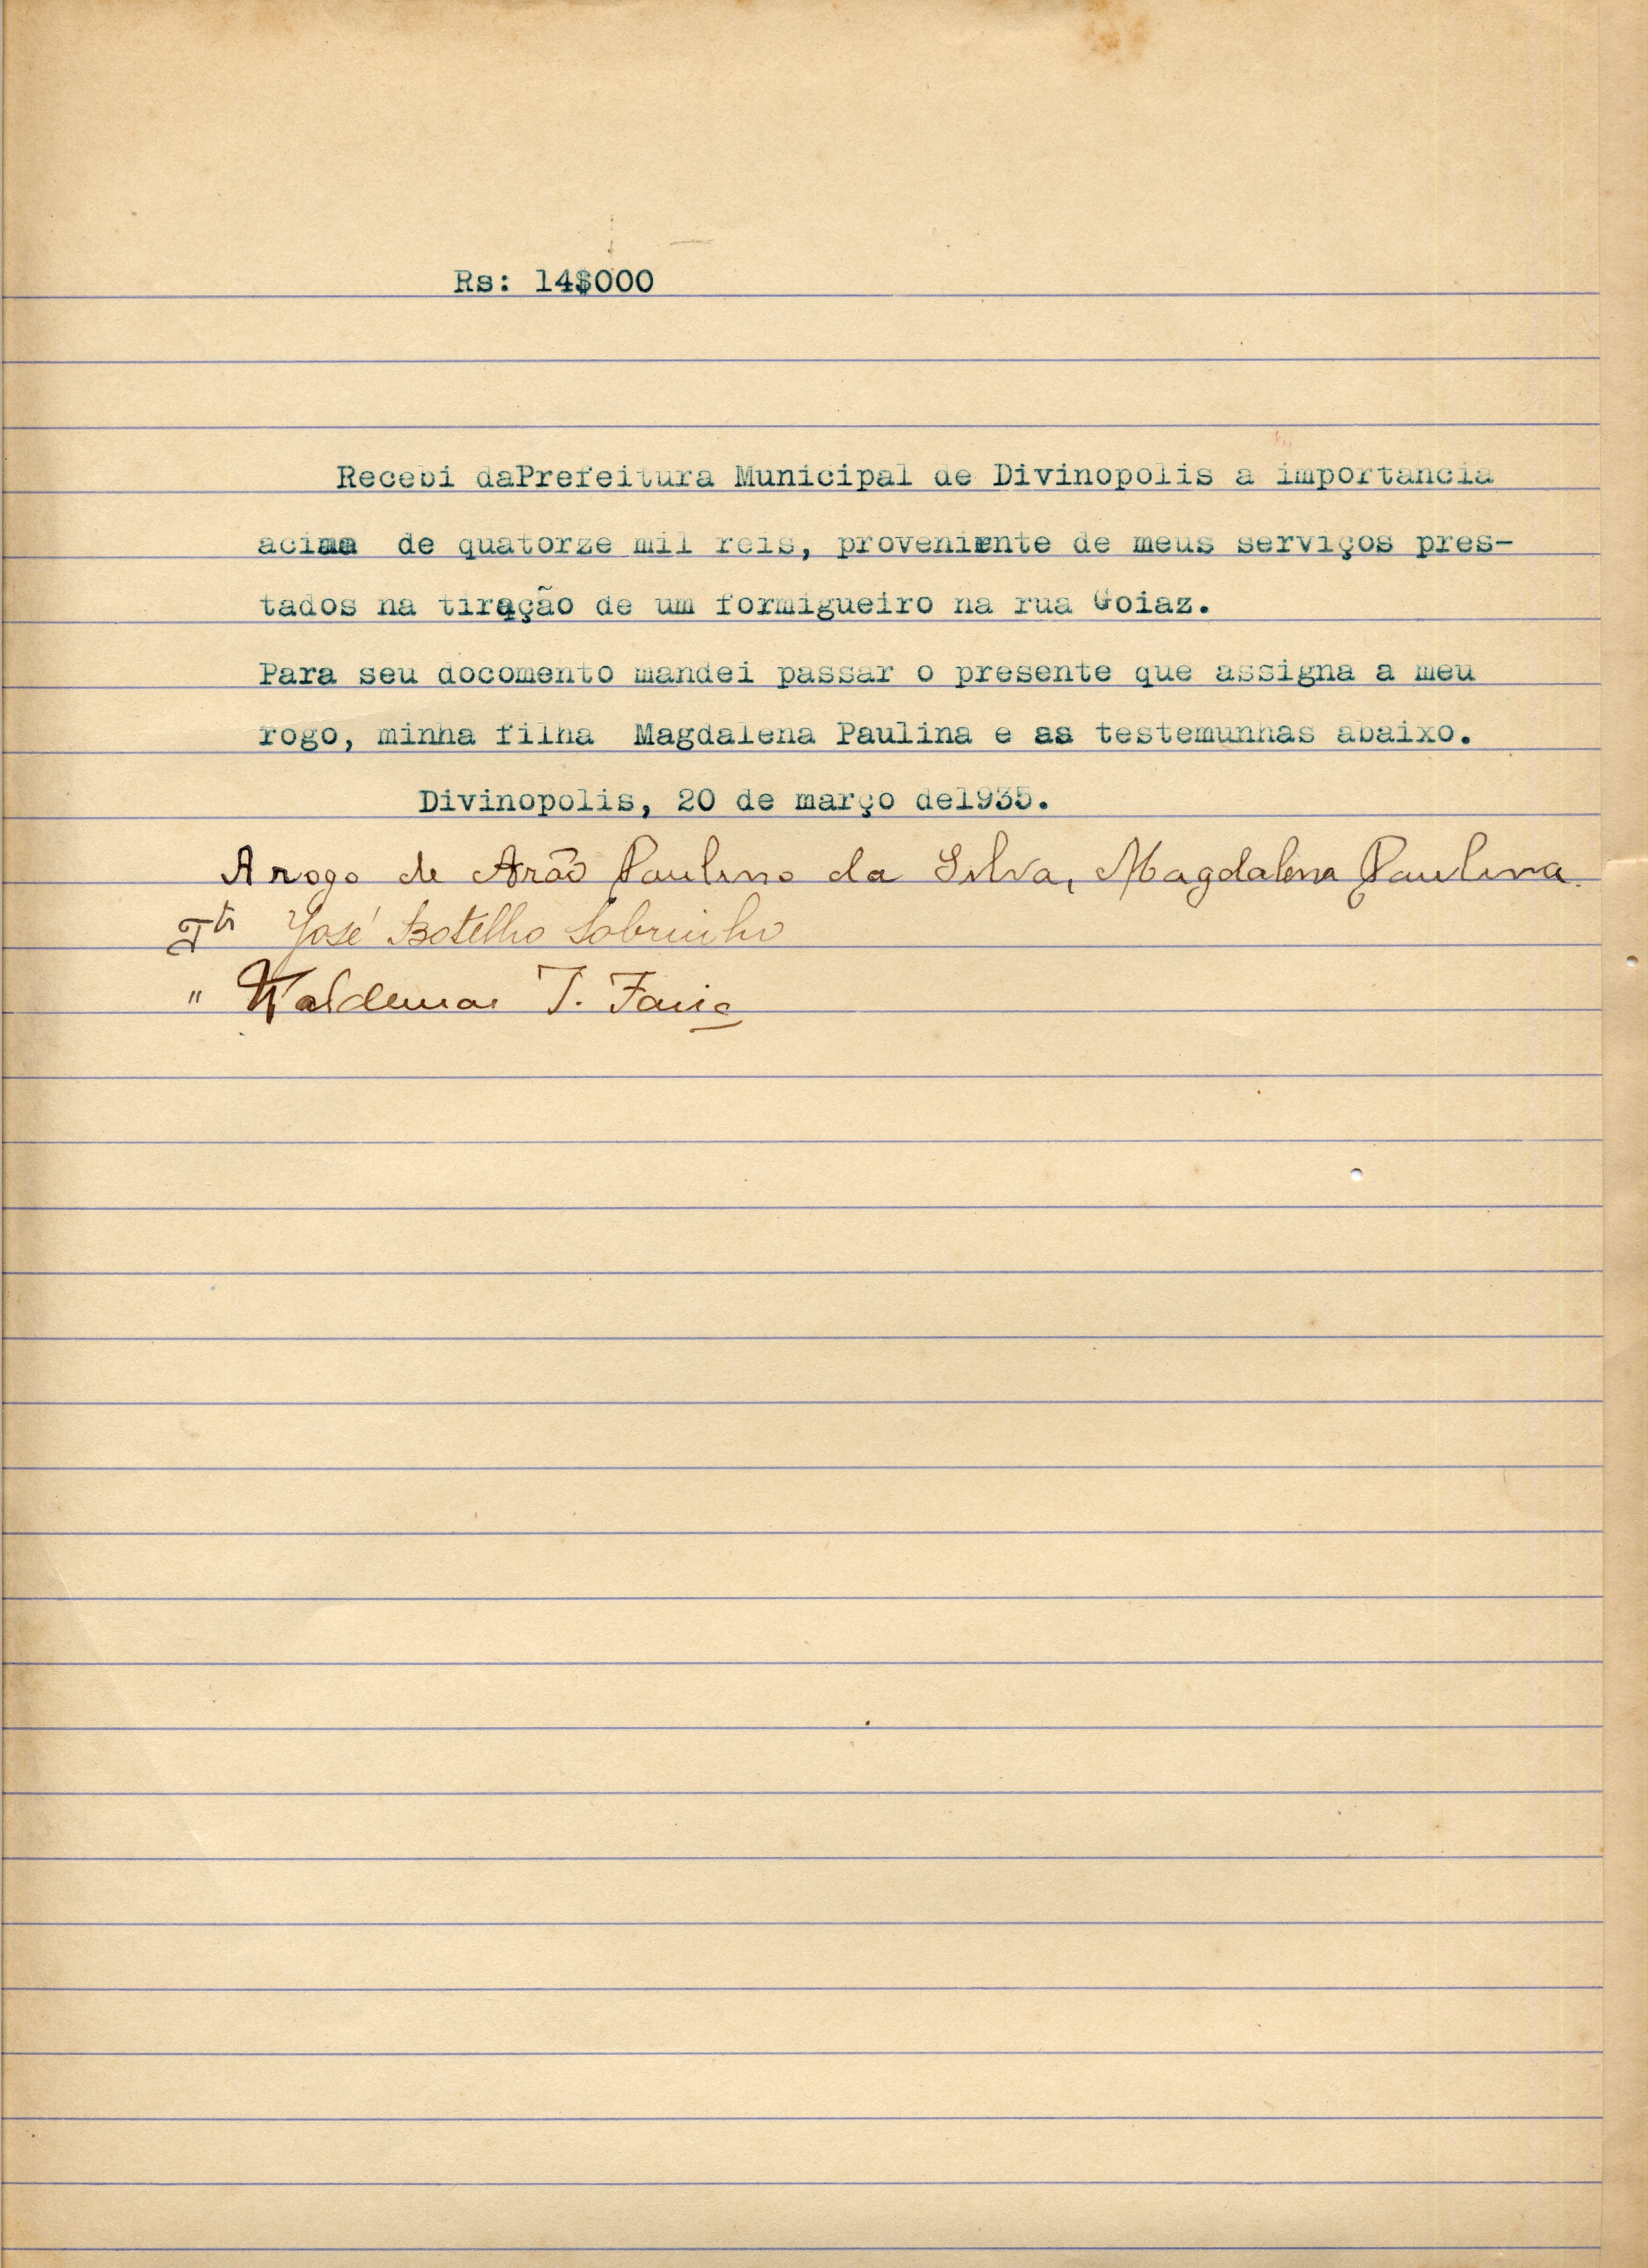 Rs: 14$000
Recebi daPrefeitura Municipal de Divinopolis a importancia
acima de quatorze mil reis, proveniente de meus serviços pres-
tados na tiração de um formigueiro na rua Goiaz.
Para seu docomento mandei passar o presente que assigna a meu
rogo, minha filha Magdalena Paulina e as testemunhas abaixo.
Divinopolis, 20 de março de1935.
A rogo de Arão Paulino da Silva, Magdalena Paulina.
José Botelho Sobrinho
" Waldemar T. Faria